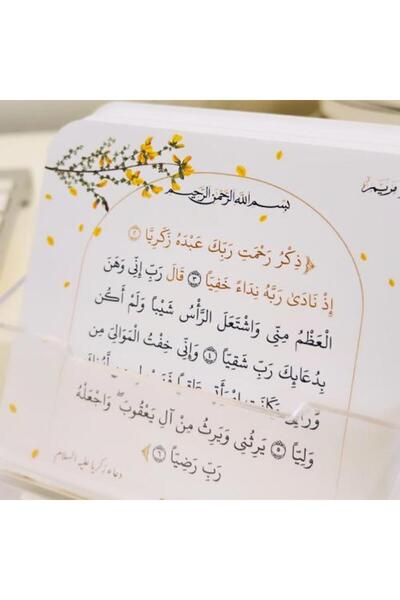 مريم
بسم الله الرحمن الرحيم
﴿ ذِكْرُ رَحْمَتِ رَبِّكَ عَبْدَهُ زَكَرِيَّا ٢
إِذْ نَادَىٰ رَبَّهُ نِدَاءً خَفِيًّا ٣ قَالَ رَبِّ إِنِّي وَهَنَ
الْعَظْمُ مِنِّي وَاشْتَعَلَ الرَّأْسُ شَيْبًا وَلَمْ أَكُن
بِدُعَائِكَ رَبِّ شَقِيًّا ٤ وَإِنِّي خِفْتُ الْمَوَالِيَ مِن
وَلِيًّا ٥ يَرِثُنِي وَيَرِثُ مِنْ آلِ يَعْقُوبَ ۖ وَاجْعَلْهُ
رَبِّ رَضِيًّا ٦ ﴾
دعاء زكريا عليه السلام